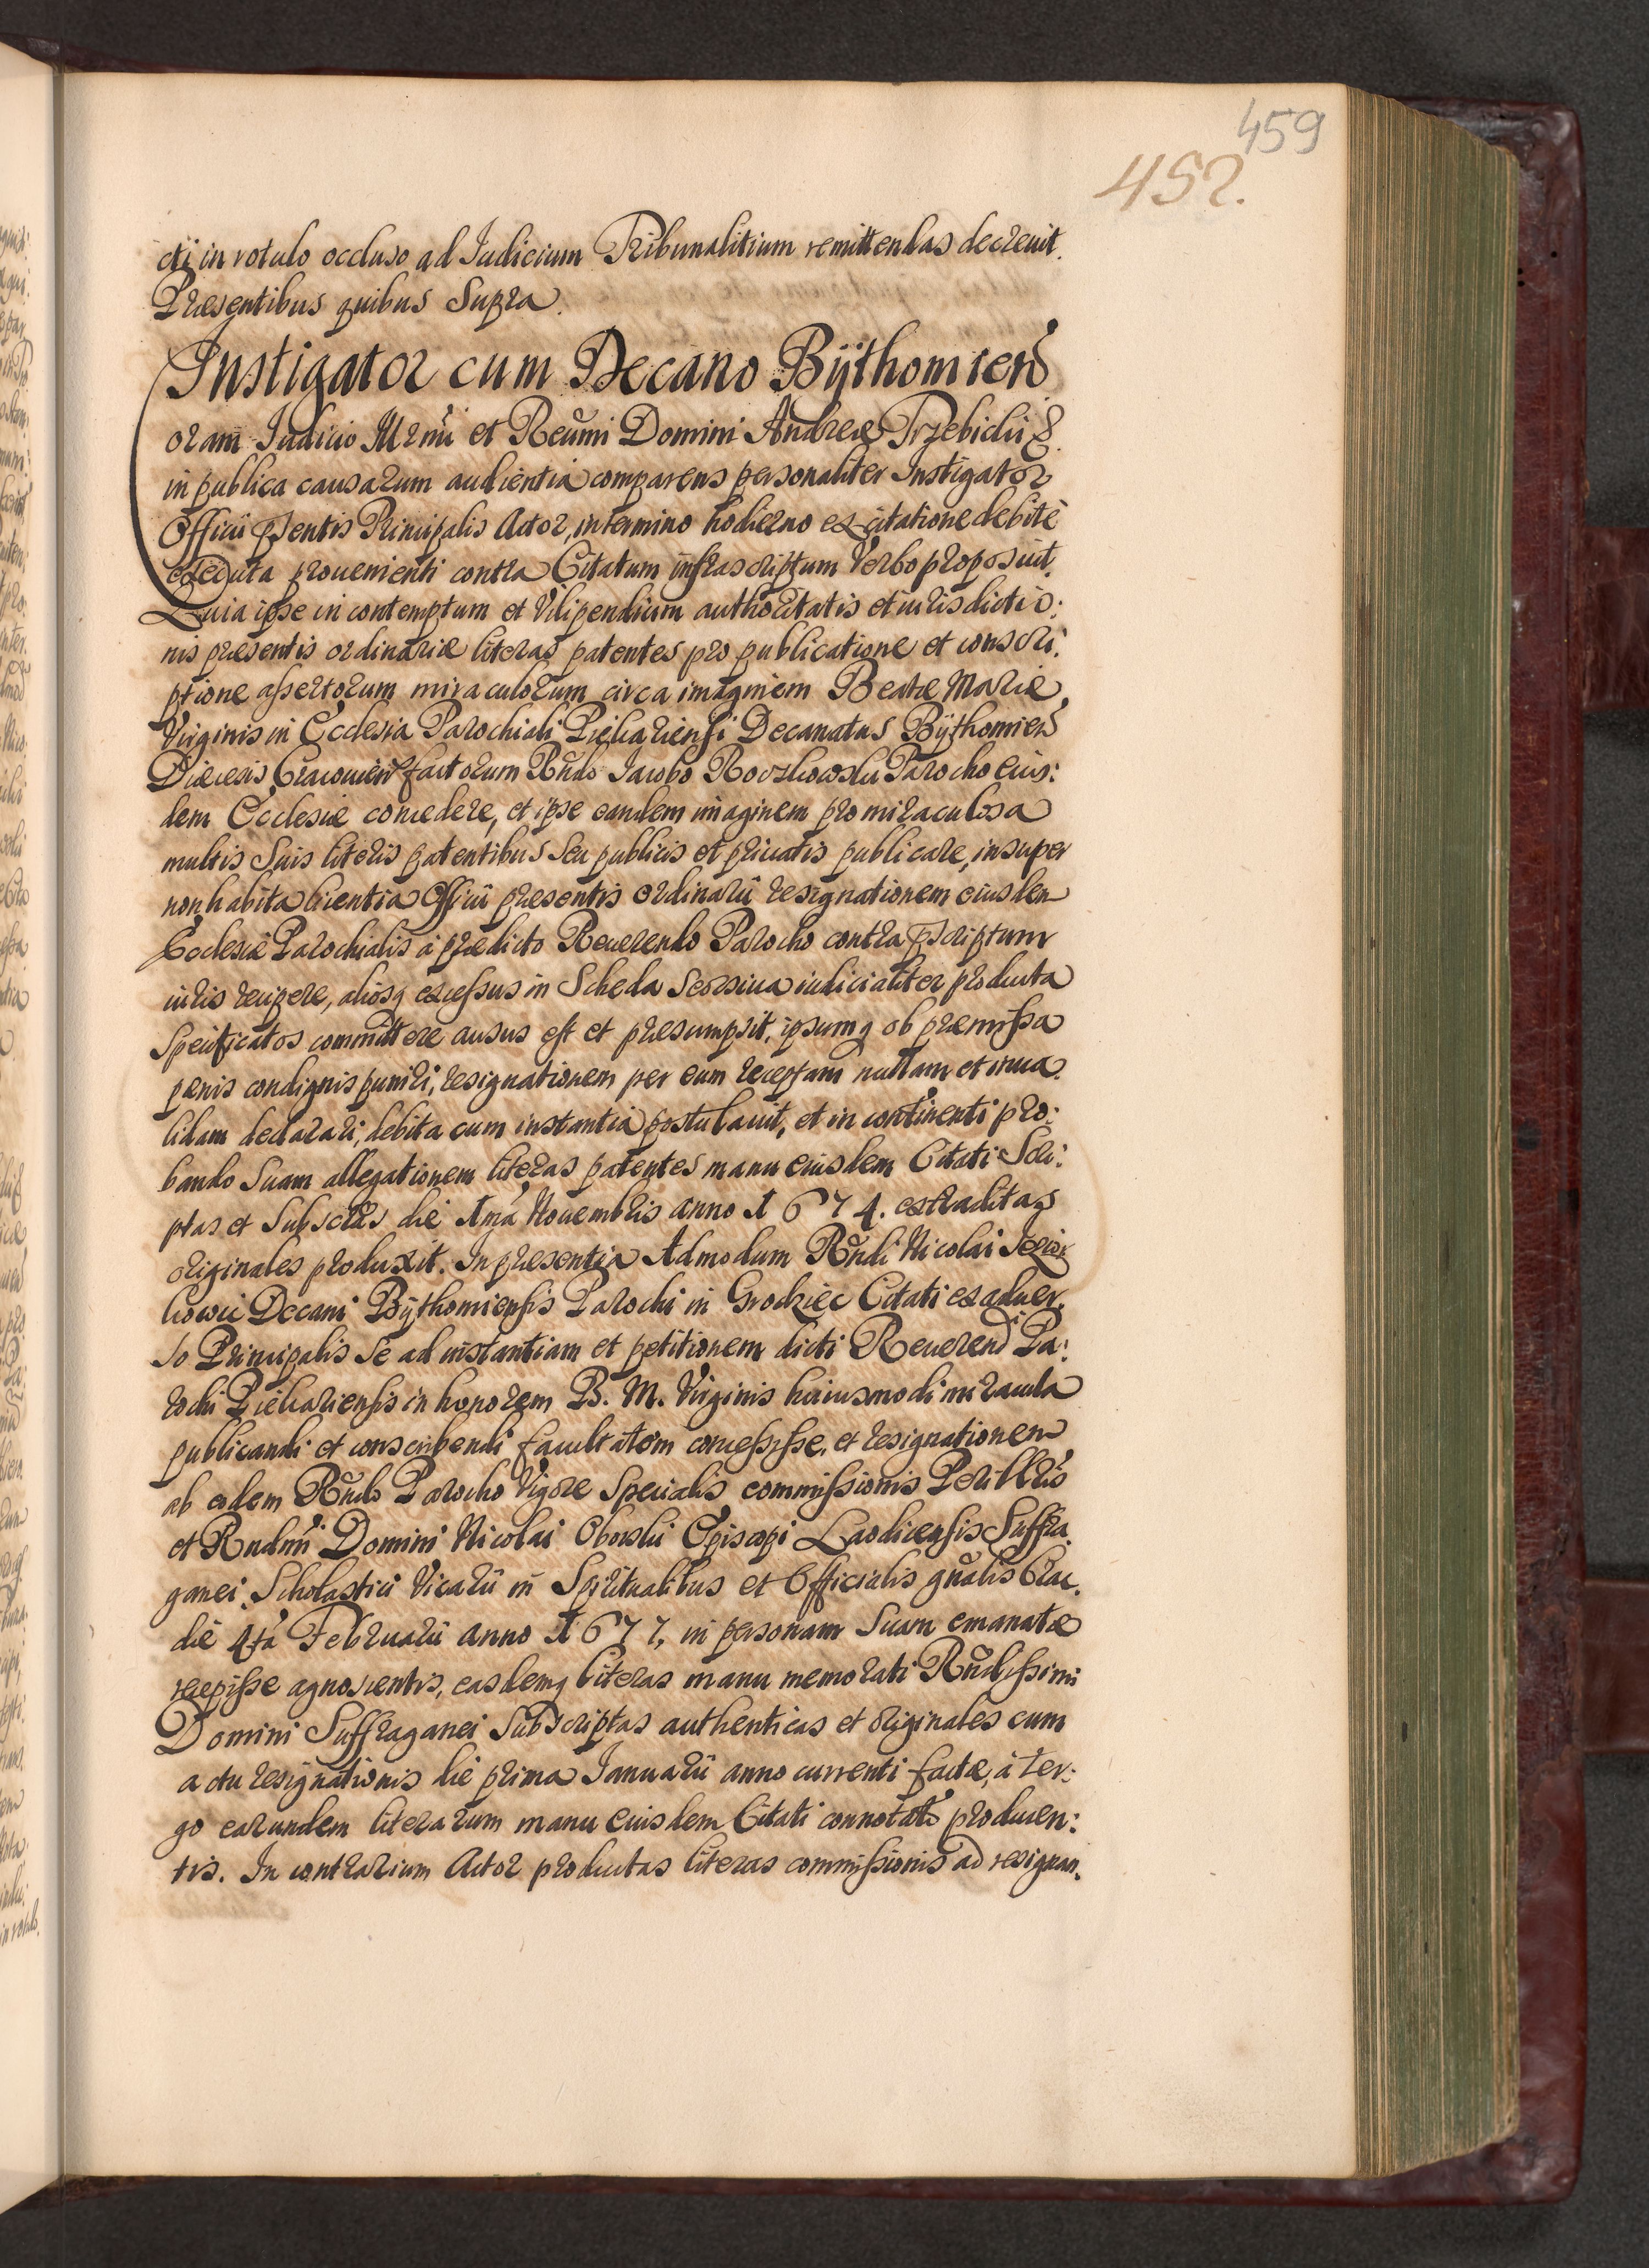 459
452.
cti in rotulo occluso ad Iudicium Tribunalitium remittendas decreuit.
Præsentibus quibus Supra.
Instigator cum Decano Bÿthomien
Coram Iudicio Illrmi et Reumi Domini Andreæ Trzebicki &
in publica causarum audientia comparens personaliter Instigator
Officii pſentis Principalis Actor, in termino hodierno ex citatione debitè
executa prouenienti contra Citatum infrascriptum Verbo proposuit.
Quia ipse in contemptum et Vilipendium authoritatis et iurisdictio:
nis præsentis ordinariæ literas patentes pro publicatione et conscri:
ptione assertorum miraculorum circa imaginem Beatæ Mariæ
Virginis in Ecclesia Parochiali Piekariensi Decanatus Bÿthomien
Diæcesis Cracouien factorum Rndo Iacobo Roczkowski Parocho eius:
dem Ecclesiæ concedere, et ipse eandem imaginem pro miraculosa
multis Suis literis patentibus Seu publicis et priuatis publicare, insuper
non habita licentia Officii præsentis ordinarii resignationem eiusdem
Ecclesiæ Parochialis à prædicto Reuerendo Parocho contra pſcriptum
iuris recipere, aliosq excessus in Scheda Seorsiua iudicialiter producta
Specificatos committere ausus est et præsumpsit, ipsumq ob præmissa
pænis condignis puniri, resignationem per eum receptam nullam et inua.
lidam declarari, debita cum instantia postulauit, et in continenti pro:
bando Suam allegationem literas patentes manu eiusdem Citati Scri:
ptas et Subscrtas die 1ma Nouembris anno 1674. extraditas
originales produxit. In præsentia Admodum Rndi Nicolai
kowic Decani Bÿthomiensis Parochi in Grodziec Citati ex aduer.
so Principalis Se ad instantiam et petitionem dicti Reuerendi Pa:
rochi Piekariensis in honorem B. M. Virginis huiusmodi miracula
publicandi et conscribendi facultatem concessisse, et resignationem
ab eodem Rndo Parocho Vigore Specialis commissionis Perillris
et Rndmi Domini Nicolai Oborski Episcopi Laodicensis Suffra.
ganei Scholastici Vicarii in Spiritualibus et Officialis gnalis Crac.
die 4ta Februarii anno 1677, in personam Suam emanatæ
recepisse agnoscentis, easdemq literas manu memorati Rndissimi
Domini Suffraganei Subscriptas authenticas et originales cum
actu resignationis die prima Ianuarii anno currenti factæ, à ter:
go earundem literarum manu eiusdem Citati connotato producen:
tis. In contrarium Actor productas literas commissionis ad resignan.